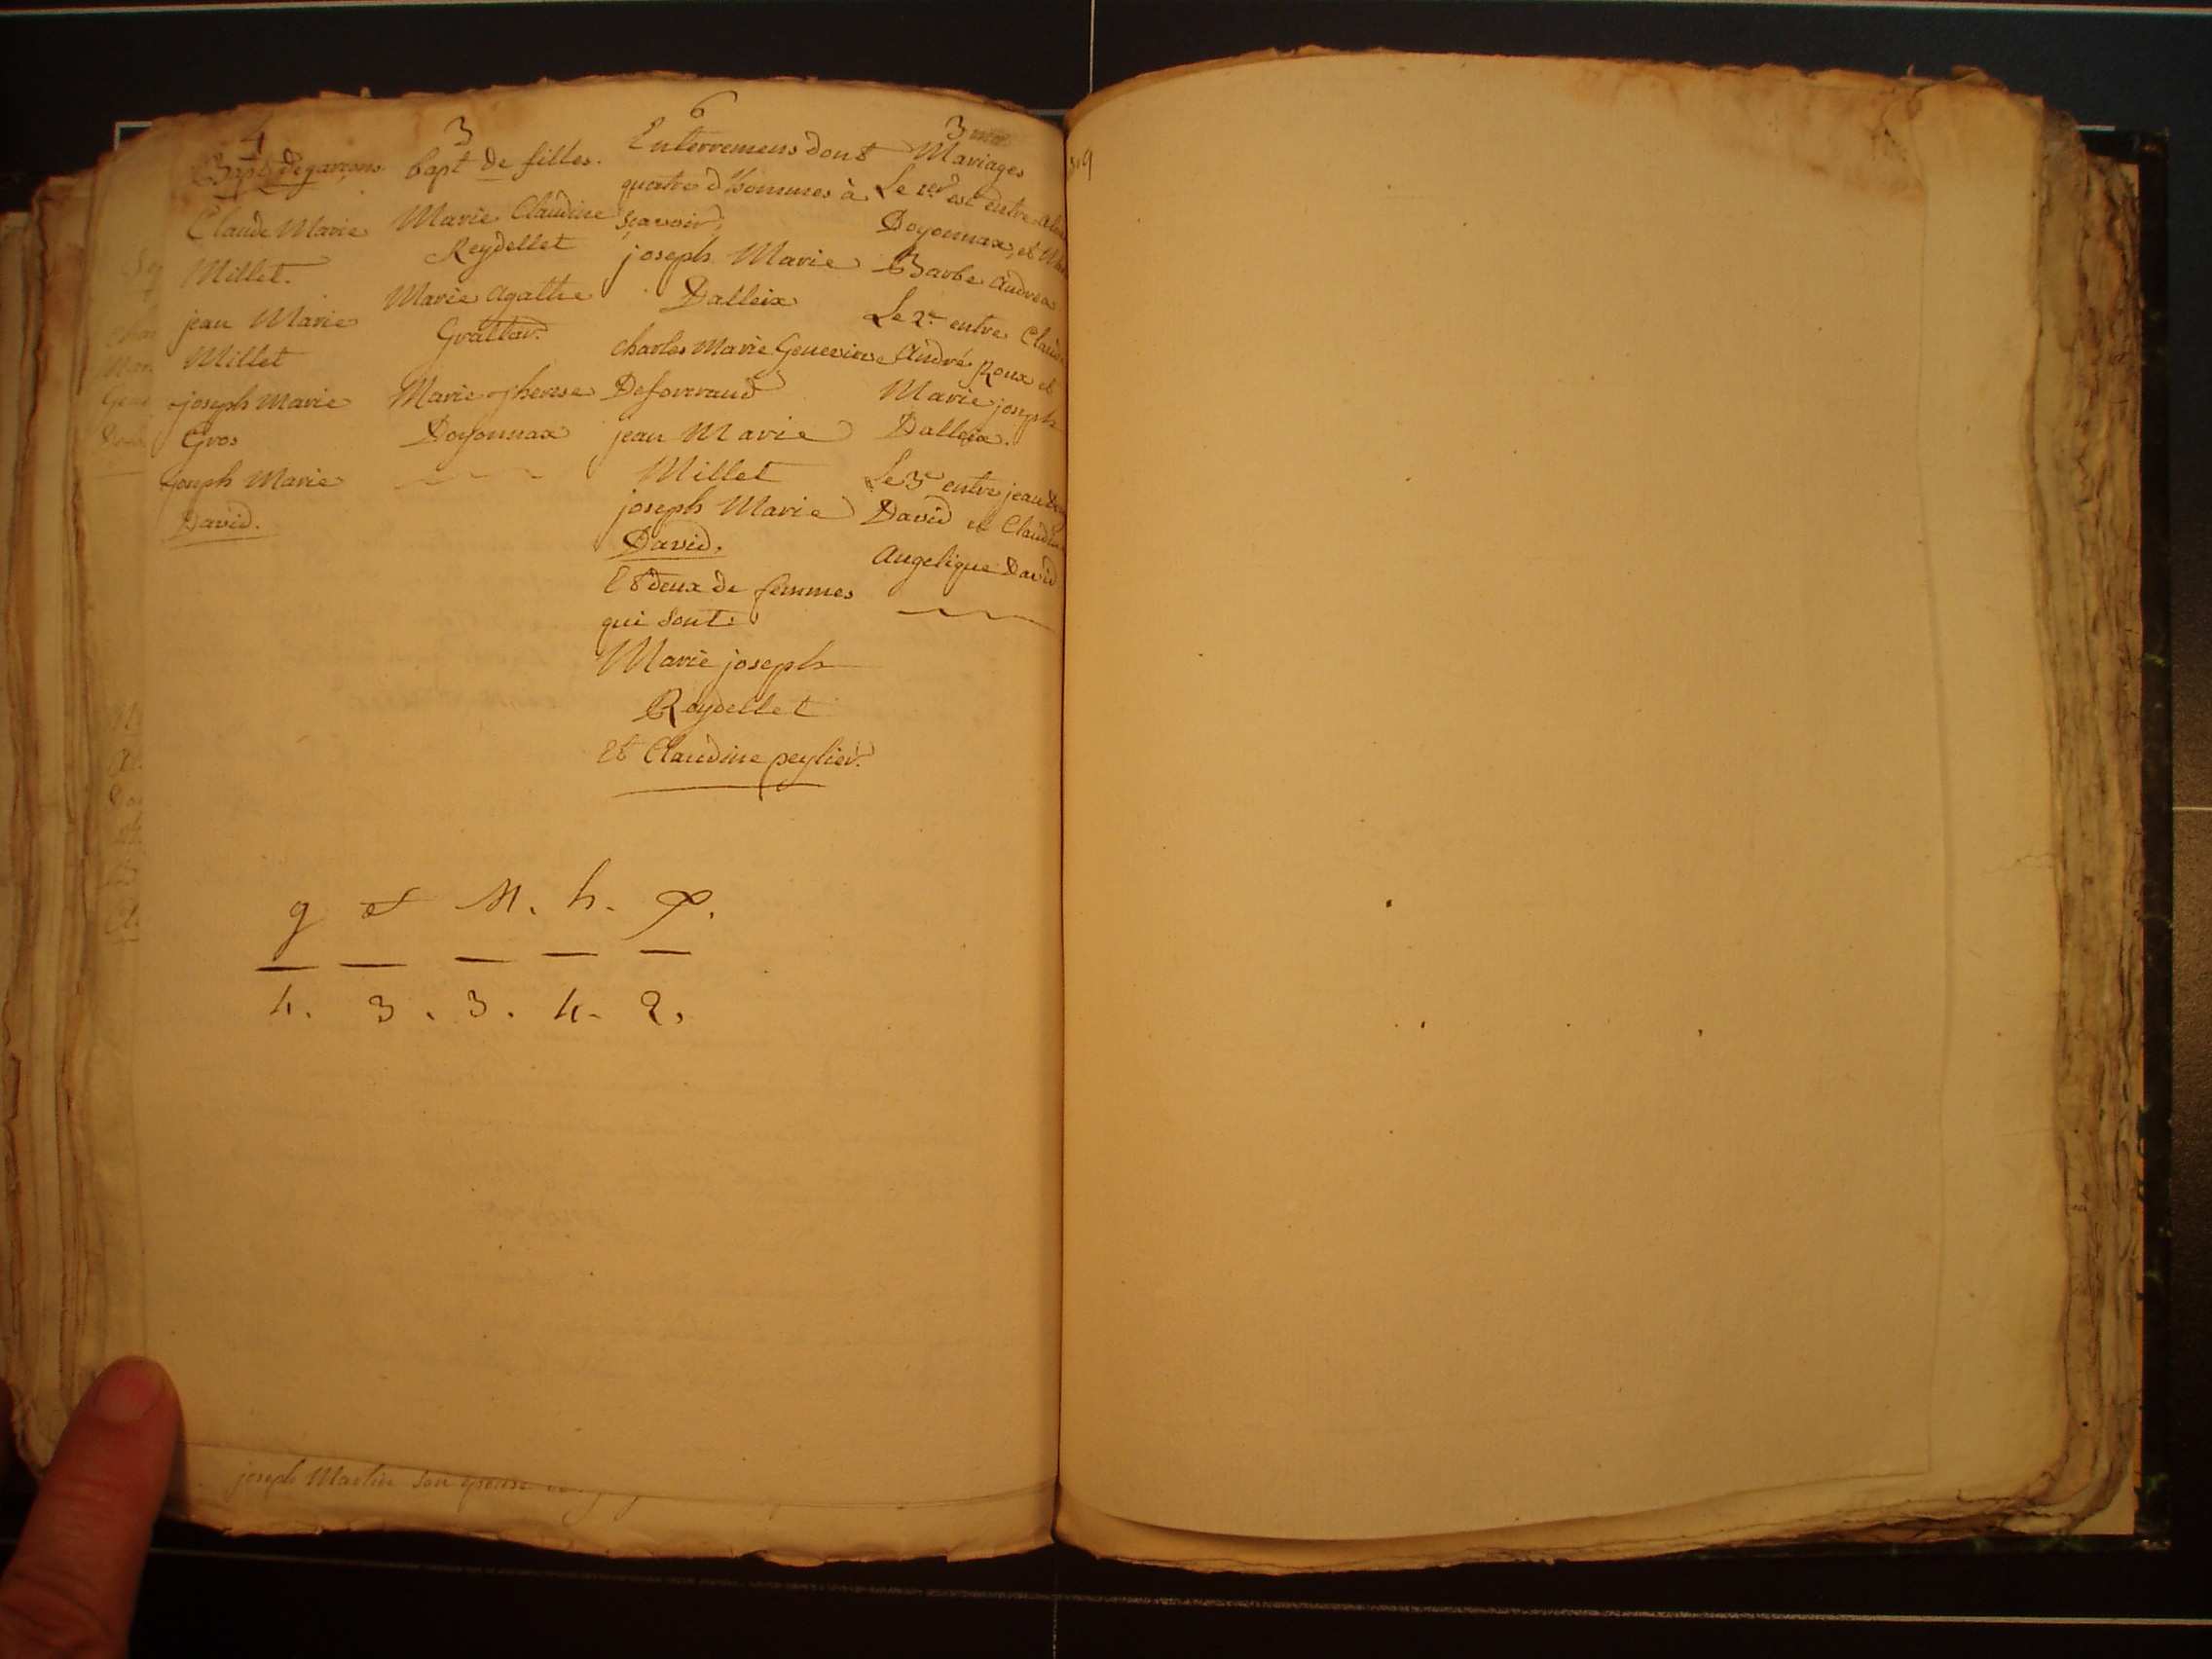 4
Bapt de garcons
Claude Marie
Millet.
jean Marie
Millet
joseph Marie
Gros
joseph Marie
David.
3
bapt de filles.
Marie Claudine
Reydellet
Marie agathe
Grattard
Marie Therese
Doyonnax
6
Enterremens dont
quatre d'hommes à
sçavoir,
joseph Marie
Dalleix
charles Marie Genevieve
Deforeraud
jean Marie
Millet
joseph Marie
David.
Et deux de femmes
qui sont.
Marie joseph
Reydellet
Et Claudine peylier.
3
Mariages
Le 1er est entre
Doyonnax, et
Barbe Andrea
Le 2e entre Claude
André Roux et
Marie joseph
Dalleix.
Le 3e entre jean
David et Claudine
Angelique David
g f M. h. f.
4. 3. 3. 4. 2.
joseph Martin son epouse